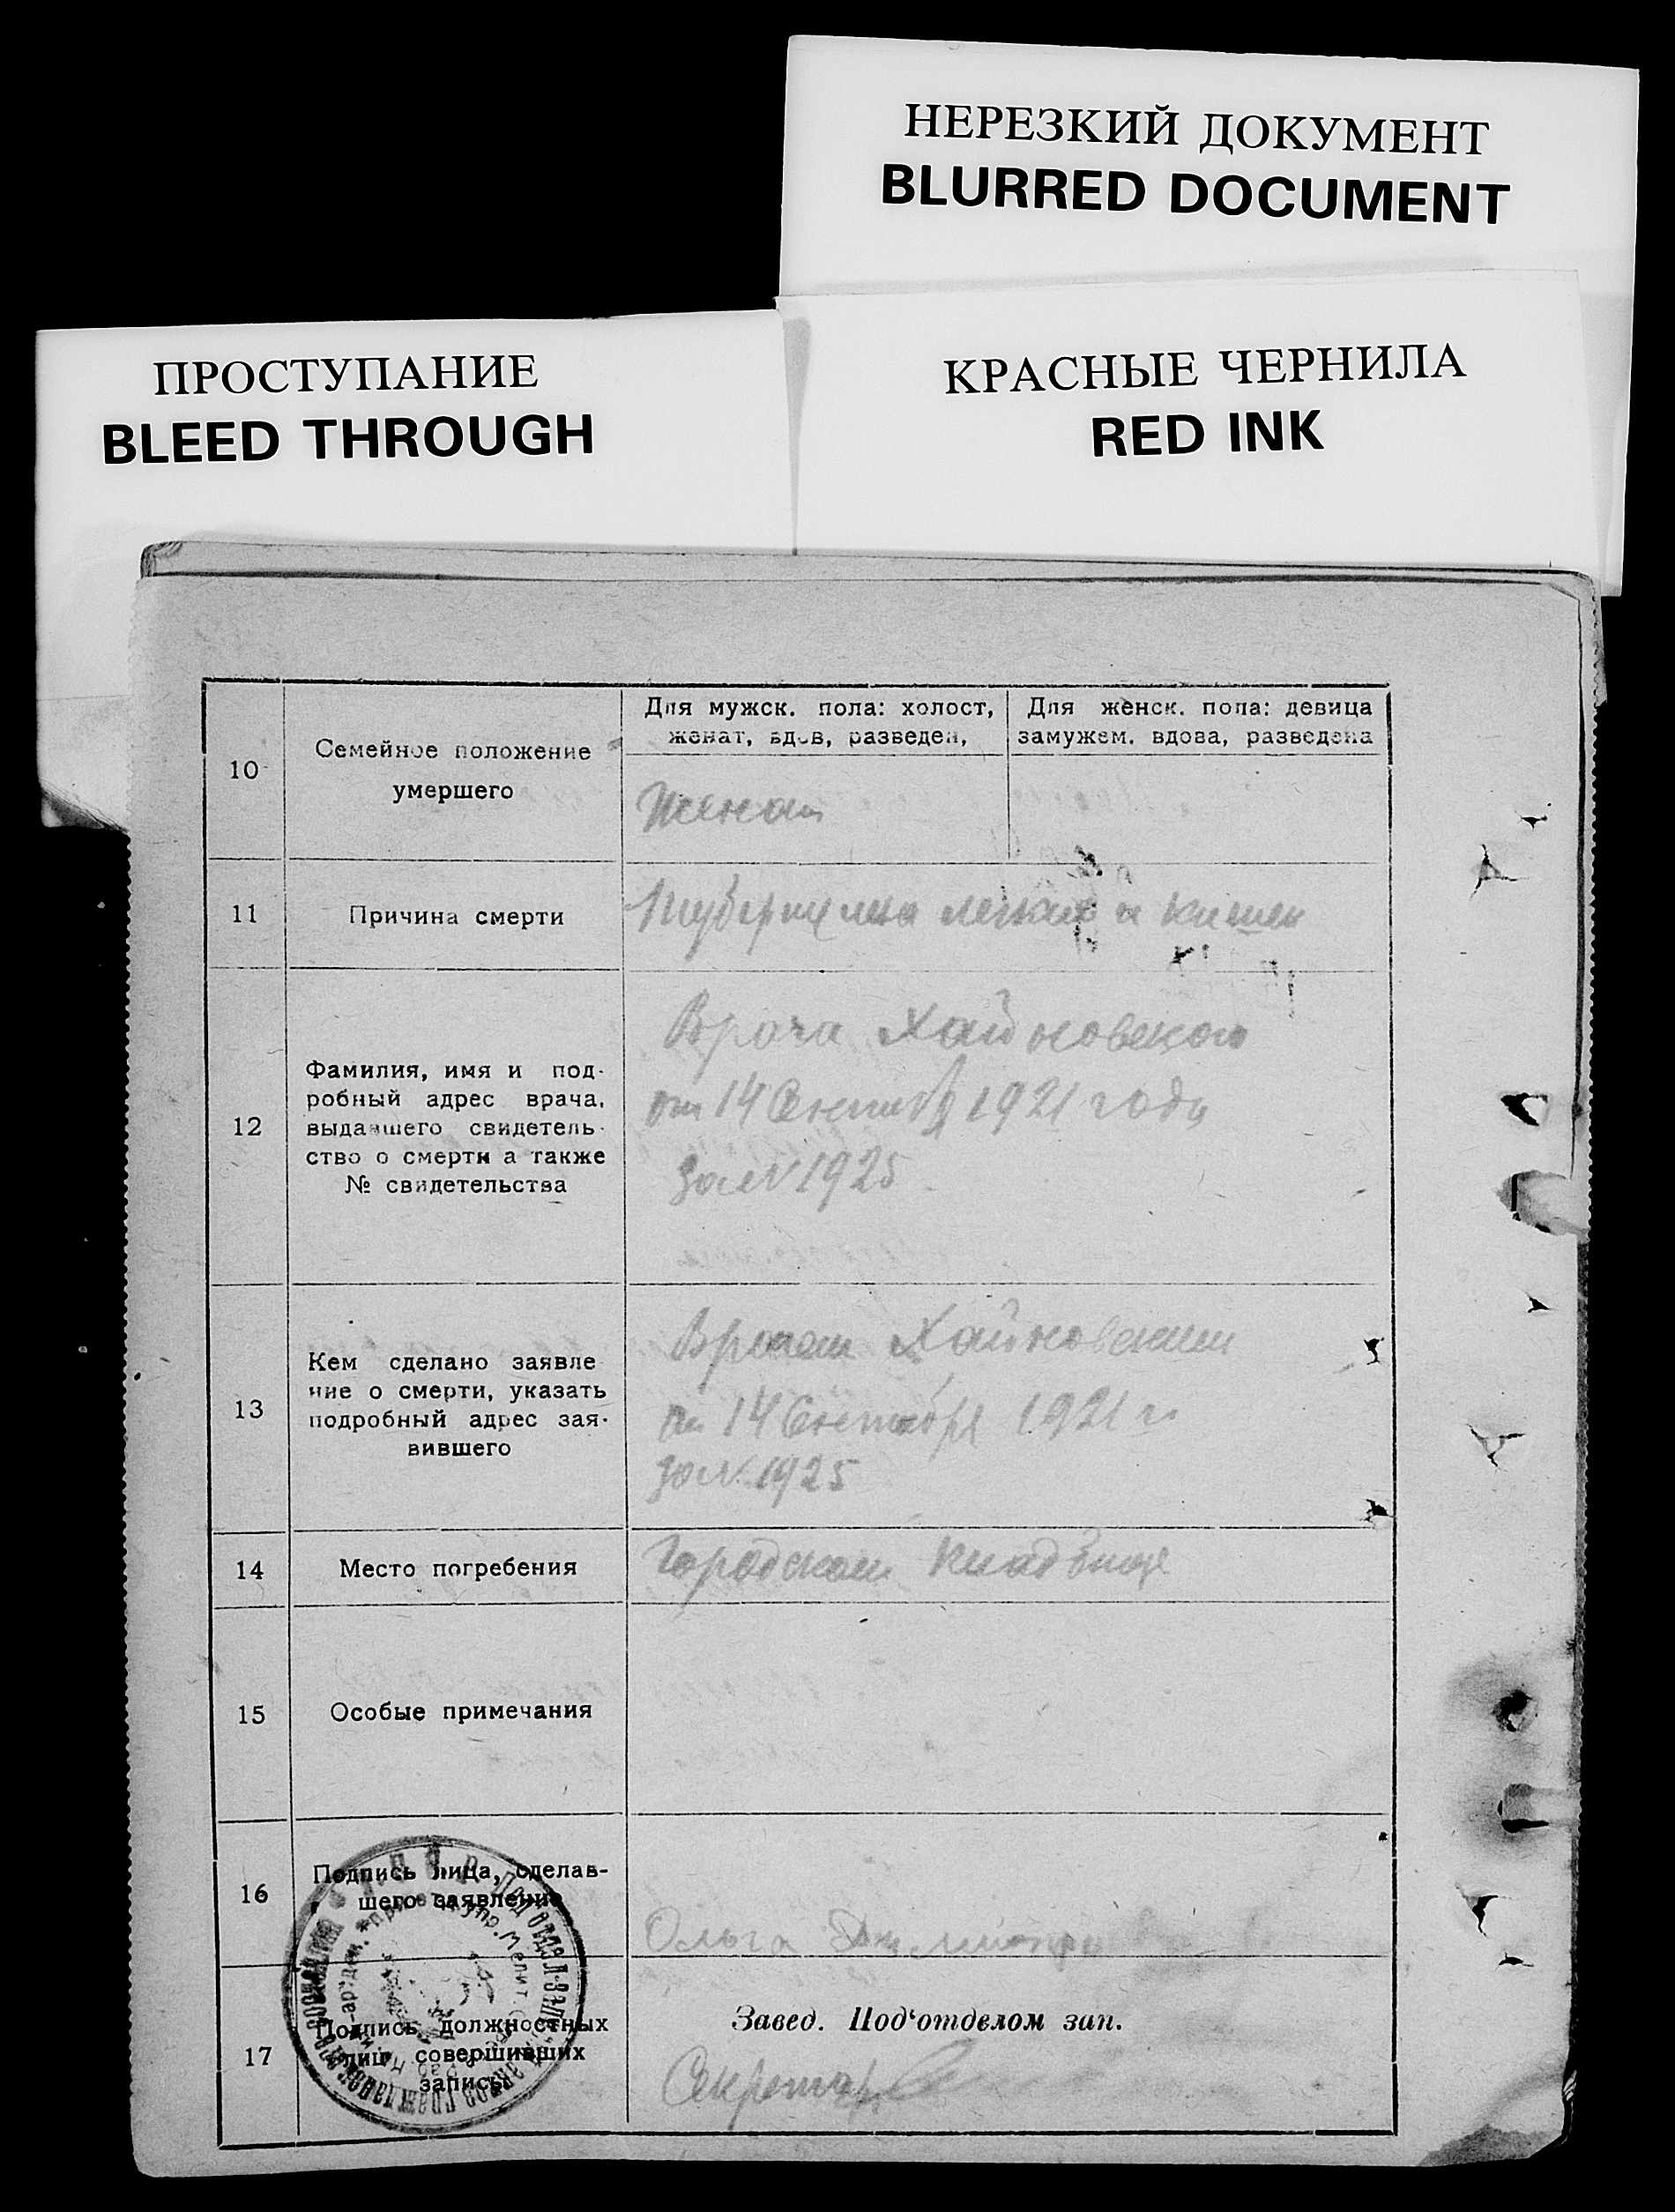 НЕРЕЗКИЙ ДОКУМЕНТ
BLURRED DOCUMENT
ПРОСТУПАНИЕ
BLEED THROUGH
КРАСНЫЕ ЧЕРНИЛА
RED INK
10
Семейное положение
умершего
Для мужск. пола: холост,
женат, вдов, разведен,
Для женск. пола: девица
замужем, вдова, разведена
Женат
11
Причина смерти
легких и кишек
12
Фамилия, имя и под-
робный адрес врача,
выдавшего свидетель-
ство о смерти а также
№ свидетельства
Врача Хайновского
от 14 Сентября 1921 года
за N 1925
13
Кем сделано заявле
ние о смерти, указать
подробный адрес зая-
вившего
Врачем Хайновским
от 14 Сентября 1921 г.
за N 1925
14
Место погребения
Городском Кладбище
15
Особые примечания
16
Подпись лица, сделав-
шего заявление
Ольга
17
Подпись должностных
лиц, совершивших
запись
Завед. Под‘отделом зап.
Секретарь